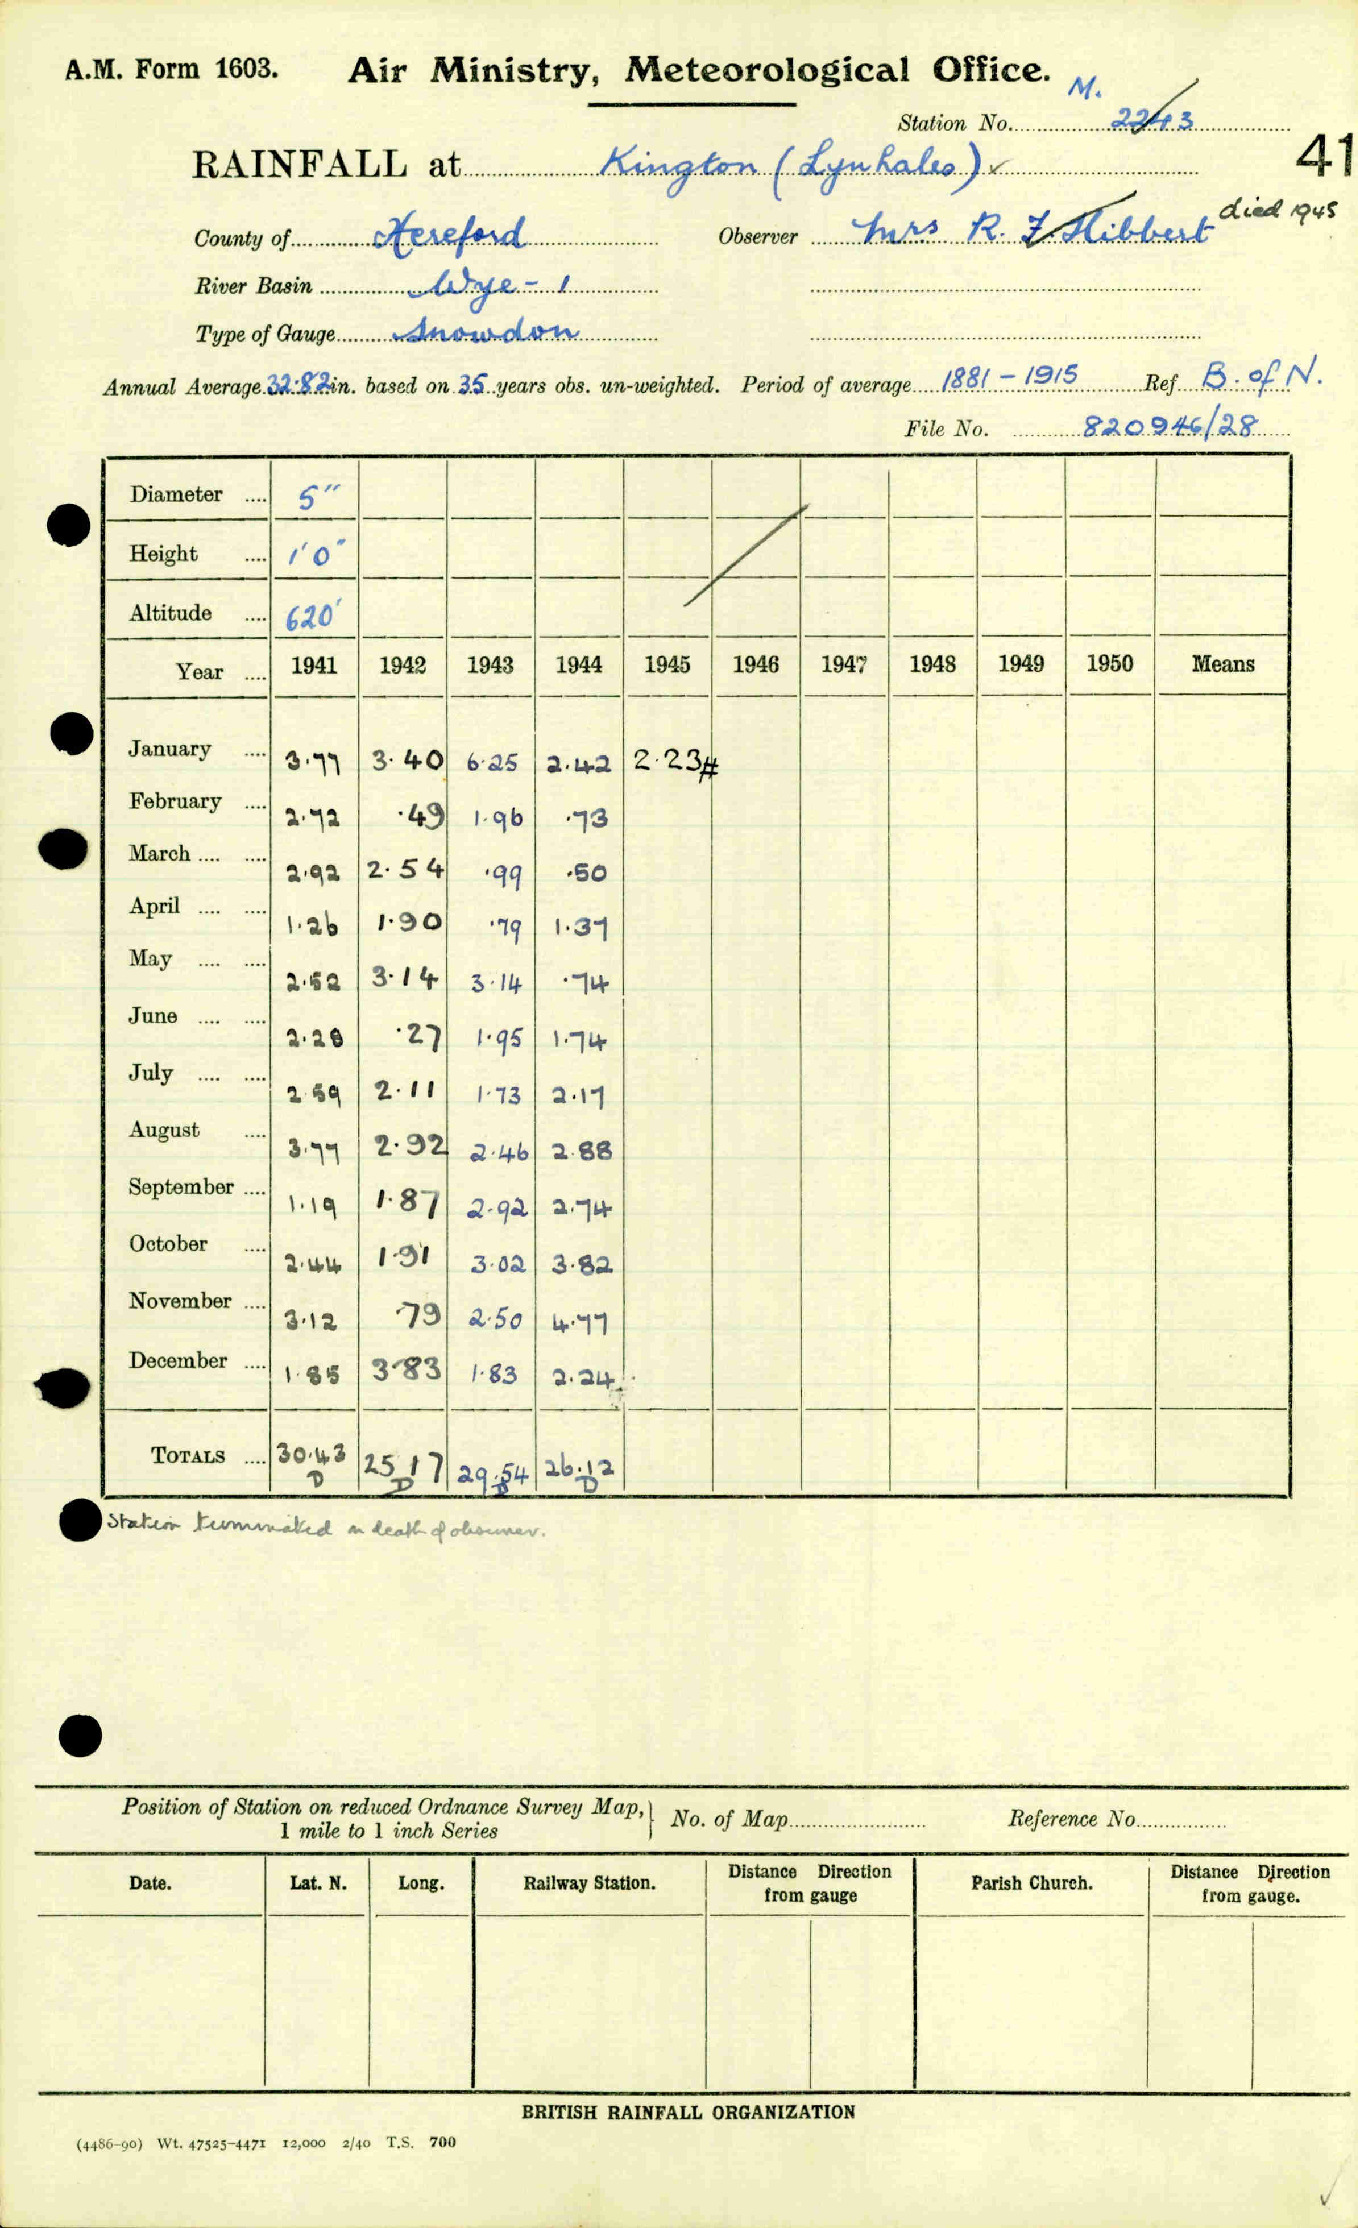 A.M. Form 1603. Air Ministry, Meteorological Office.
M.
Station No. 2243
41
RAINFALL at Kington (Lynhales) ✓
died 1945
County of Hereford Observer Mrs R. F. Hibbert
River Basin Wye - 1
Type of Gauge Snowdon
Annual Average 32.82 in. based on 35 years obs. un-weighted. Period of average 1881 - 1915 Ref B. of N.
File No. 820946/28
Diameter .... 5"
Height .... 1'0"
Altitude .... 620'
Year .... 1941 1942 1943 1944 1945 1946 1947 1948 1949 1950 Means
January .... 3.77 3.40 6.25 2.42 2.23#
February .... 2.72 .49 1.96 .73
March .... .... 2.92 2.54 .99 .50
April .... .... 1.26 1.90 .79 1.37
May .... .... 2.52 3.14 3.14 .74
June .... .... 2.28 .27 1.95 1.74
July .... .... 2.59 2.11 1.73 2.17
August .... 3.77 2.92 2.46 2.88
September .... 1.19 1.87 2.92 2.74
October .... 2.44 1.91 3.02 3.82
November .... 3.12 .79 2.50 4.77
December .... 1.85 3.83 1.83 2.24
TOTALS .... 30.43 25.17 29.54 26.12
D D D D
Station terminated on death of observer.
Position of Station on reduced Ordnance Survey Map, } No. of Map Reference No.
1 mile to 1 inch Series
Date. Lat. N. Long. Railway Station. Distance Direction from gauge Parish Church. Distance Direction from gauge.
BRITISH RAINFALL ORGANIZATION
(4486-90) Wt. 47525-4471 12,000 2/40 T.S. 700
✓